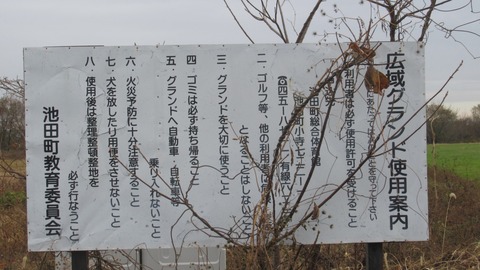 広域グランド使用案内
利用者は必ず使用許可を受けること
池田町総合体育館
二、ゴルフ等、他の利用者に
となることはしないこと
三、グランドを大切に使うこと
四、ゴミは必ず持ち帰ること
五、グランドへ自動車・自転車等
乗り入れないこと
六、火災予防に十分注意すること
七、犬を放したり用便をさせないこと
八、使用後は整理整頓整地を
必ず行なうこと
池田町教育委員会